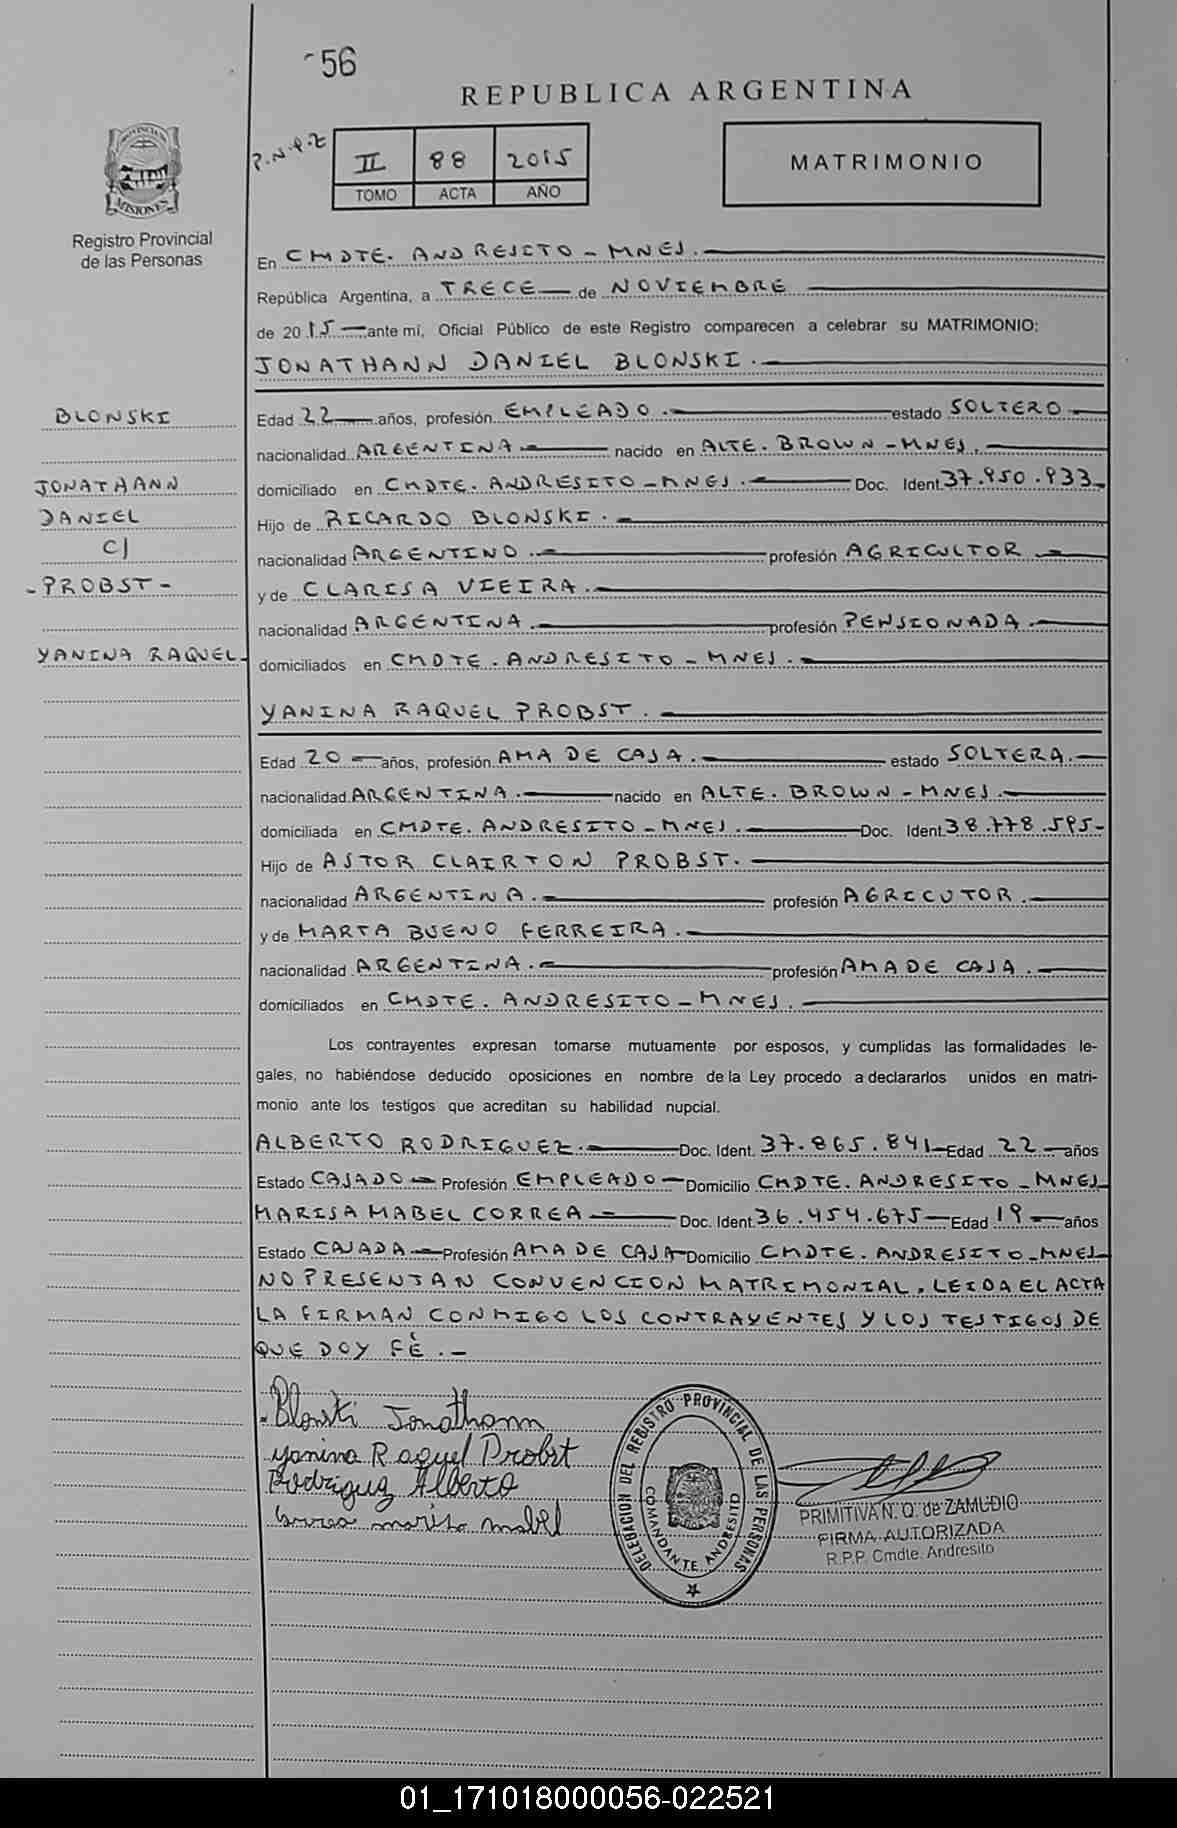 56
REPUBLICA ARGENTINA
P.N.Q.Z
II 88 2015
TOMO ACTA AÑO
MATRIMONIO
PROVINCIA DE
MISIONES
Registro Provincial
de las Personas
En CMDTE. ANDRESITO - MNES.
República Argentina, a TRECE de NOVIEMBRE
de 2015 ante mí, Oficial Público de este Registro comparecen a celebrar su MATRIMONIO:
JONATHANN DANIEL BLONSKI.
BLONSKI
JONATHANN
DANIEL
C/
- PROBST -
YANINA RAQUEL-
Edad 22 años, profesión EMPLEADO. estado SOLTERO
nacionalidad ARGENTINA nacido en ALTE. BROWN - MNES.
domiciliado en CMDTE. ANDRESITO - MNES. Doc. Ident. 37.950.933
Hijo de RICARDO BLONSKI.
nacionalidad ARGENTINO. profesión AGRICULTOR
y de CLARISA VIEIRA.
nacionalidad ARGENTINA. profesión PENSIONADA.
domiciliados en CMDTE. ANDRESITO - MNES.
YANINA RAQUEL PROBST.
Edad 20 años, profesión AMA DE CASA. estado SOLTERA.
nacionalidad ARGENTINA. nacido en ALTE. BROWN - MNES.
domiciliada en CMDTE. ANDRESITO - MNES. Doc. Ident. 38.778.595-
Hijo de ASTOR CLAIRTON PROBST.
nacionalidad ARGENTINA. profesión AGRICUTOR.
y de MARTA BUENO FERREIRA.
nacionalidad ARGENTINA. profesión AMA DE CASA.
domiciliados en CMDTE. ANDRESITO - MNES.
Los contrayentes expresan tomarse mutuamente por esposos, y cumplidas las formalidades le-
gales, no habiéndose deducido oposiciones en nombre de la Ley procedo a declararlos unidos en matri-
monio ante los testigos que acreditan su habilidad nupcial.
ALBERTO RODRIGUEZ. Doc. Ident. 37.865.841 Edad 22 años
Estado CASADO Profesión EMPLEADO Domicilio CMDTE. ANDRESITO - MNES
MARISA MABEL CORREA Doc. Ident. 36.454.675 Edad 19 años
Estado CASADA Profesión AMA DE CASA Domicilio CMDTE. ANDRESITO - MNES
NO PRESENTAN CONVENCION MATRIMONIAL. LEIDA EL ACTA
LA FIRMAN CONMIGO LOS CONTRAYENTES Y LOS TESTIGOS DE
QUE DOY FÈ. -
Blonski Jonathann
Yanina Raquel Probst
Rodriguez Alberto
Correa marisa mabel
DELEGACION DEL REGISTRO PROVINCIAL DE LAS PERSONAS
COMANDANTE ANDRESITO
PRIMITIVA N. Q. de ZAMUDIO
FIRMA AUTORIZADA
R.P.P. Cmdte. Andresito
01_171018000056-022521